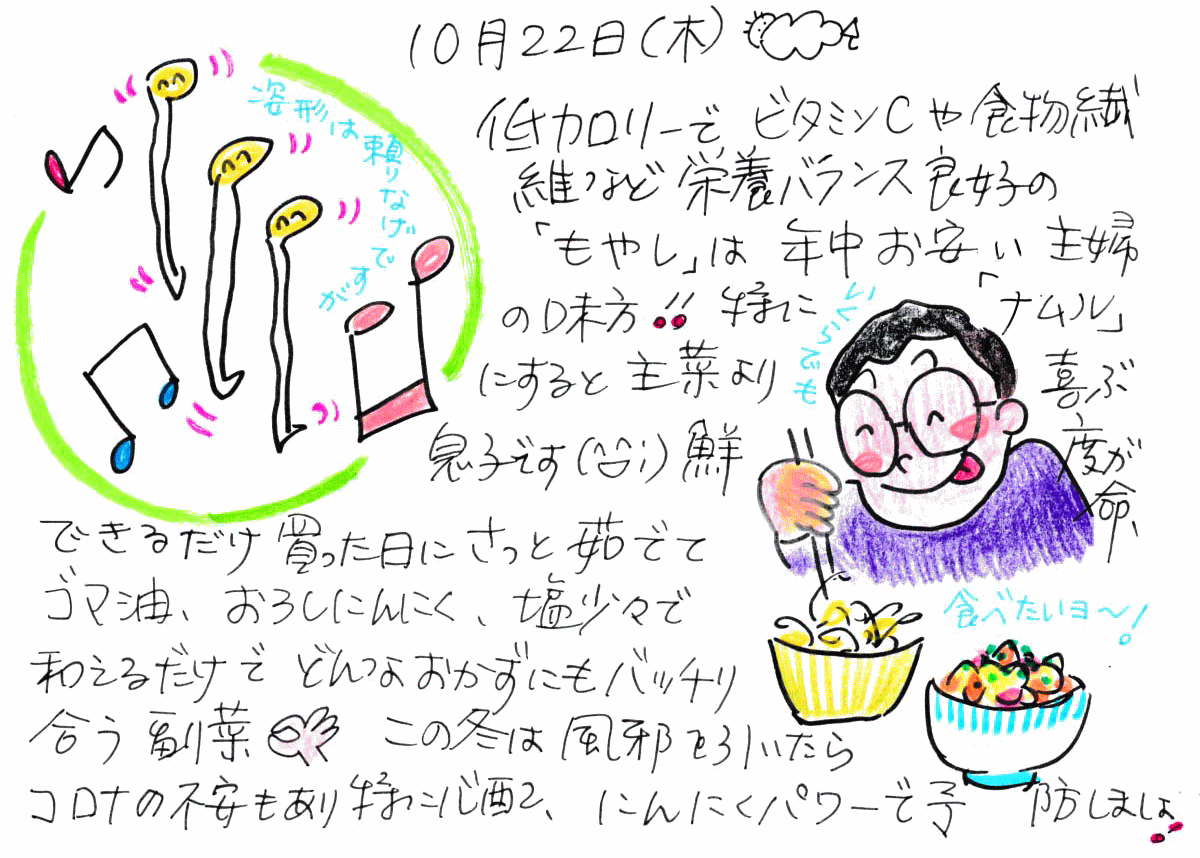 10月22日(木)
低カロリーで ビタミンCや食物繊
維など 栄養バランス良好の
「もやし」は 年中お安い 主婦
の味方!! 特に「ナムル」
にすると 主菜より 喜ぶ
息子です(^^;) 鮮度が命、
できるだけ 買った日に さっと 茹でて
ゴマ油、おろしにんにく、塩少々で
和えるだけで どんなおかずにもバッチリ
合う 副菜 この冬は 風邪を引いたら
コロナの不安もあり 特に心配、にんにくパワーで予防しましょ!
姿形は
頼りなげで
すが
いくらでも
食べたいヨ〜!